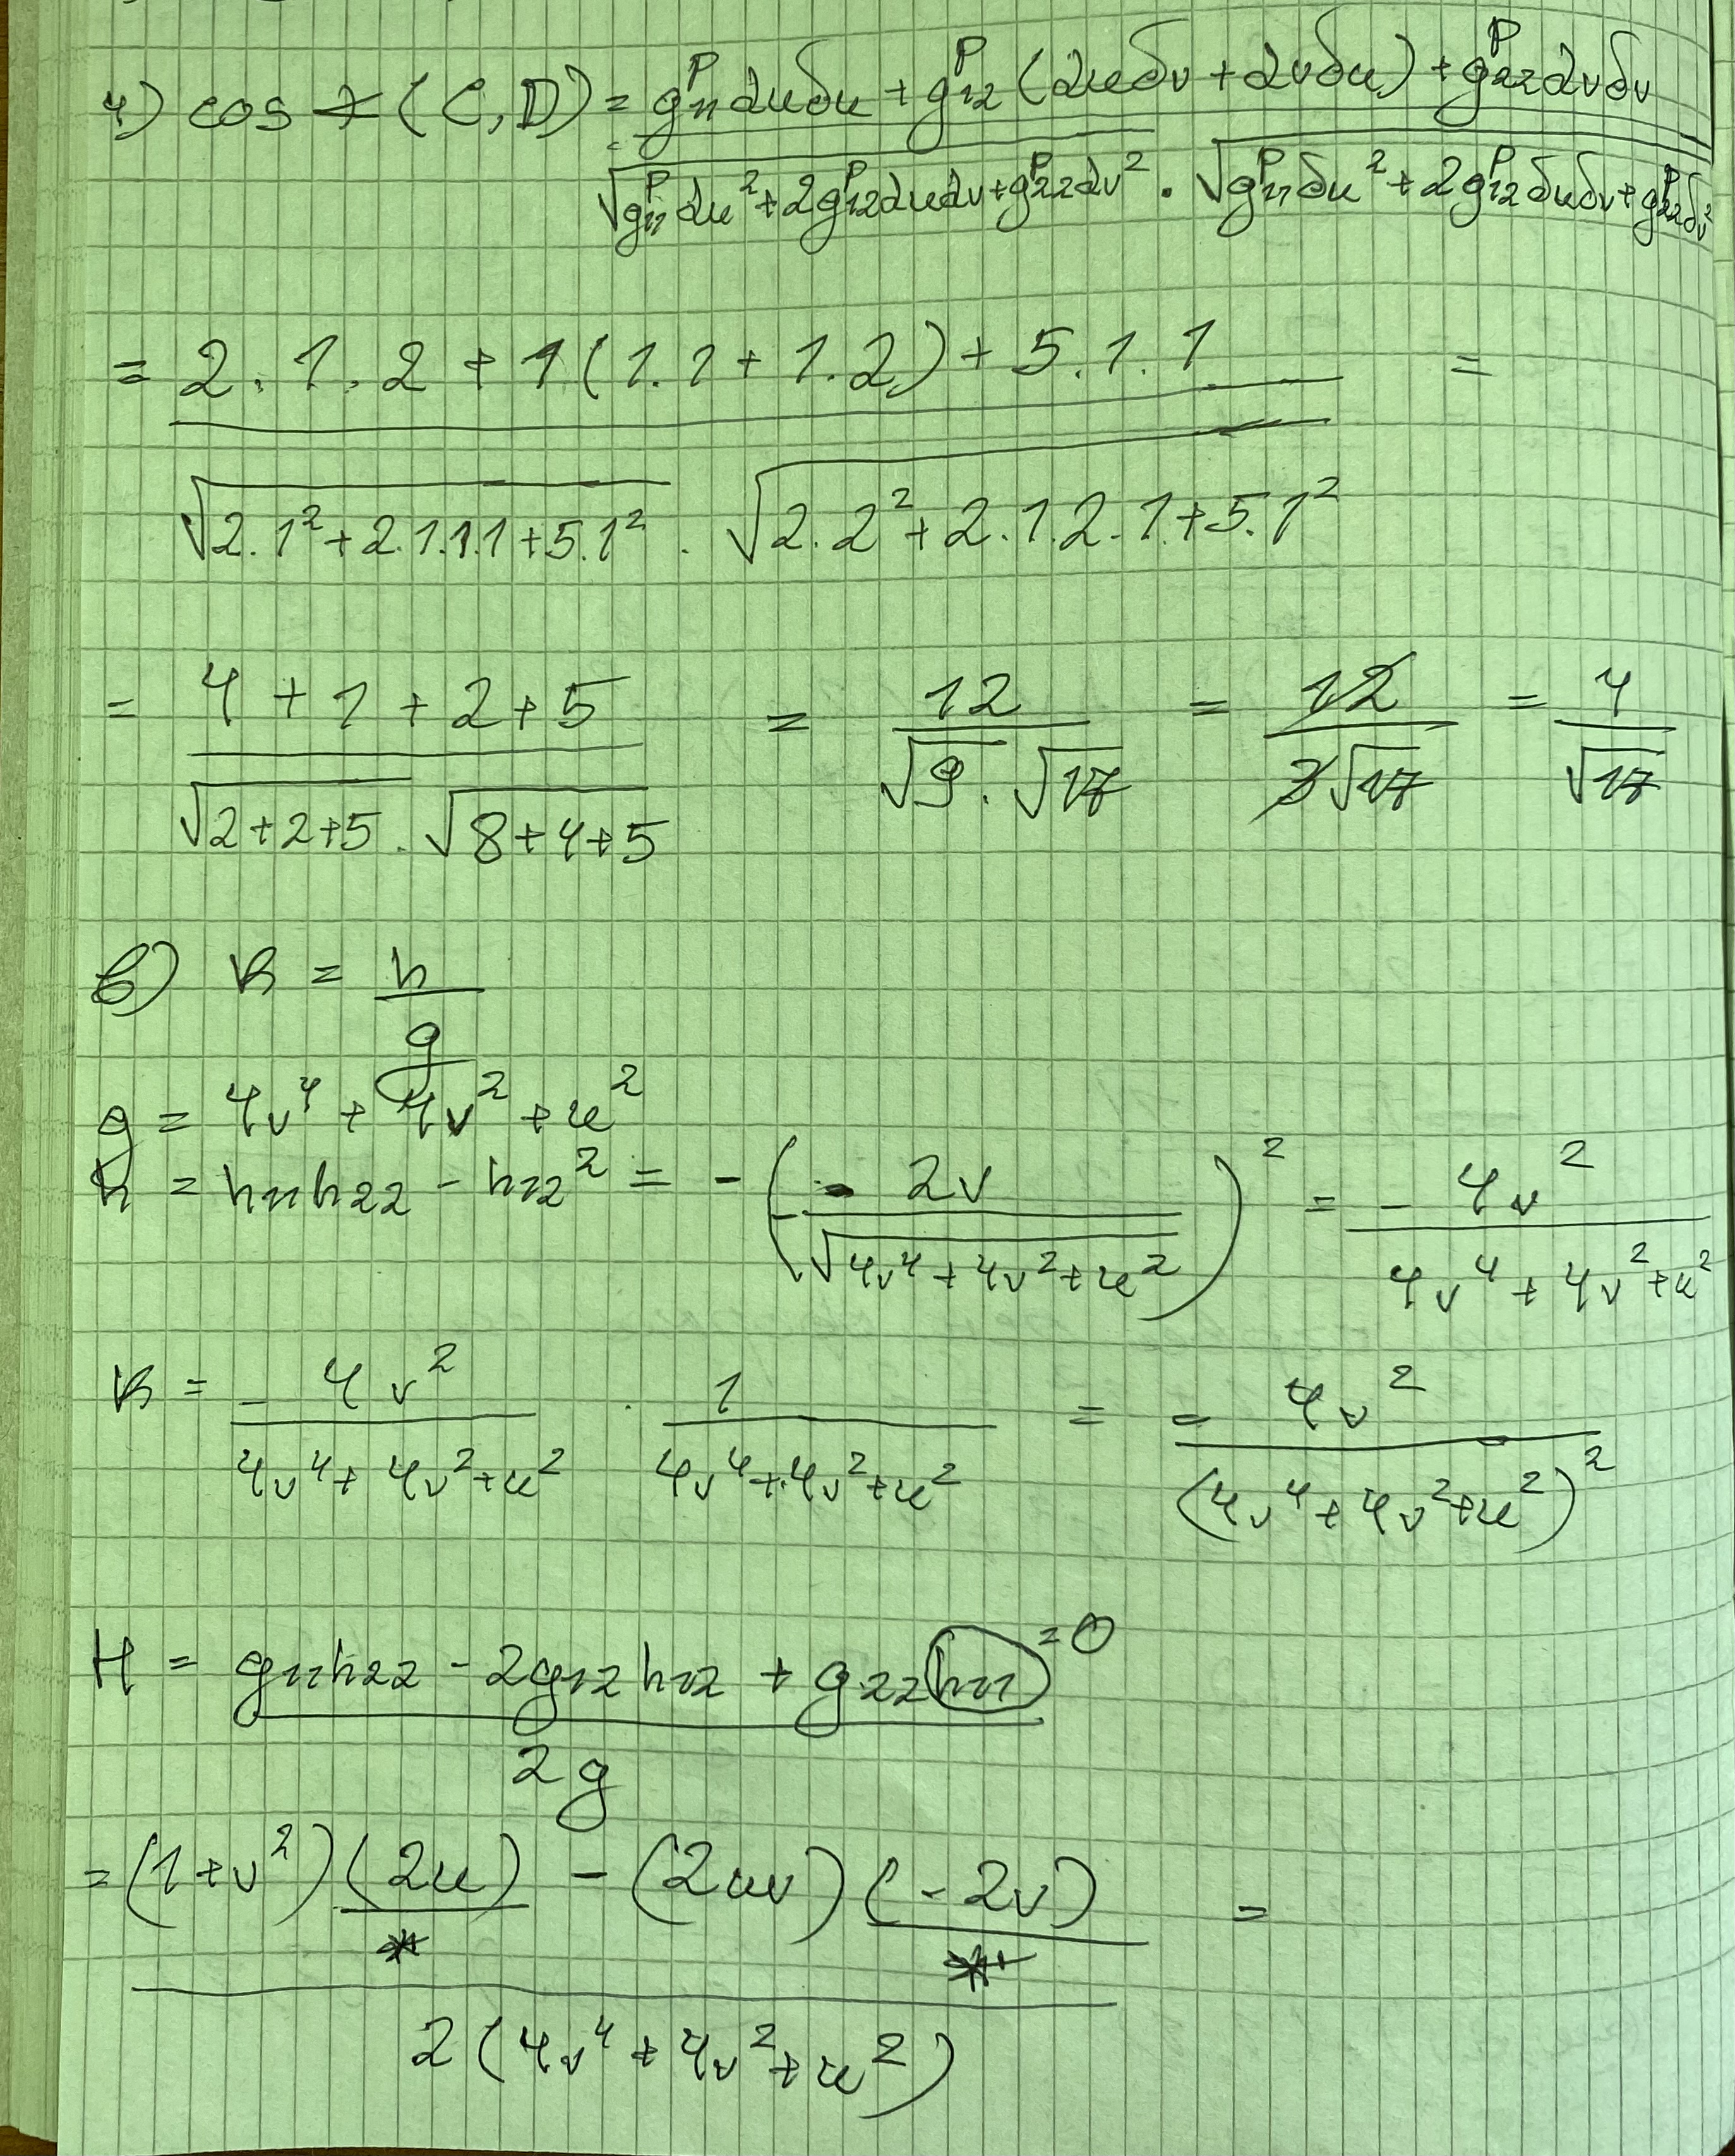 4) cos ∡ (C, D) = (g₁₁ᴾ du δu + g₁₂ᴾ (du δv + dv δu) + g₂₂ᴾ dv δv) / (√(g₁₁ᴾ du² + 2g₁₂ᴾ du dv + g₂₂ᴾ dv²) . √(g₁₁ᴾ δu² + 2g₁₂ᴾ δu δv + g₂₂ᴾ δv²))
= (2 . 1 . 2 + 1 (1.1 + 1.2) + 5.1.1) / (√(2.1² + 2.1.1.1 + 5.1²) . √(2.2² + 2.1.2.1 + 5.1²)) =
= (4 + 1 + 2 + 5) / (√(2+2+5) . √(8+4+5)) = 12 / (√9 . √17) = 12 / (3√17) = 4 / √17
в) K = h / g
g = 4v⁴ + 4v² + u²
h = h₁₁h₂₂ - h₁₂² = - (- 2v / √(4v⁴ + 4v² + u²))² = - 4v² / (4v⁴ + 4v² + u²)
K = - 4v² / (4v⁴ + 4v² + u²) . 1 / (4v⁴ + 4v² + u²) = - 4v² / (4v⁴ + 4v² + u²)²
H = (g₁₁h₂₂ - 2g₁₂h₁₂ + g₂₂h₁₁) / 2g = 0
= ((1+v²) (2u) / * - (2uv) (-2v) / *) / (2 (4v⁴ + 4v² + u²)) =